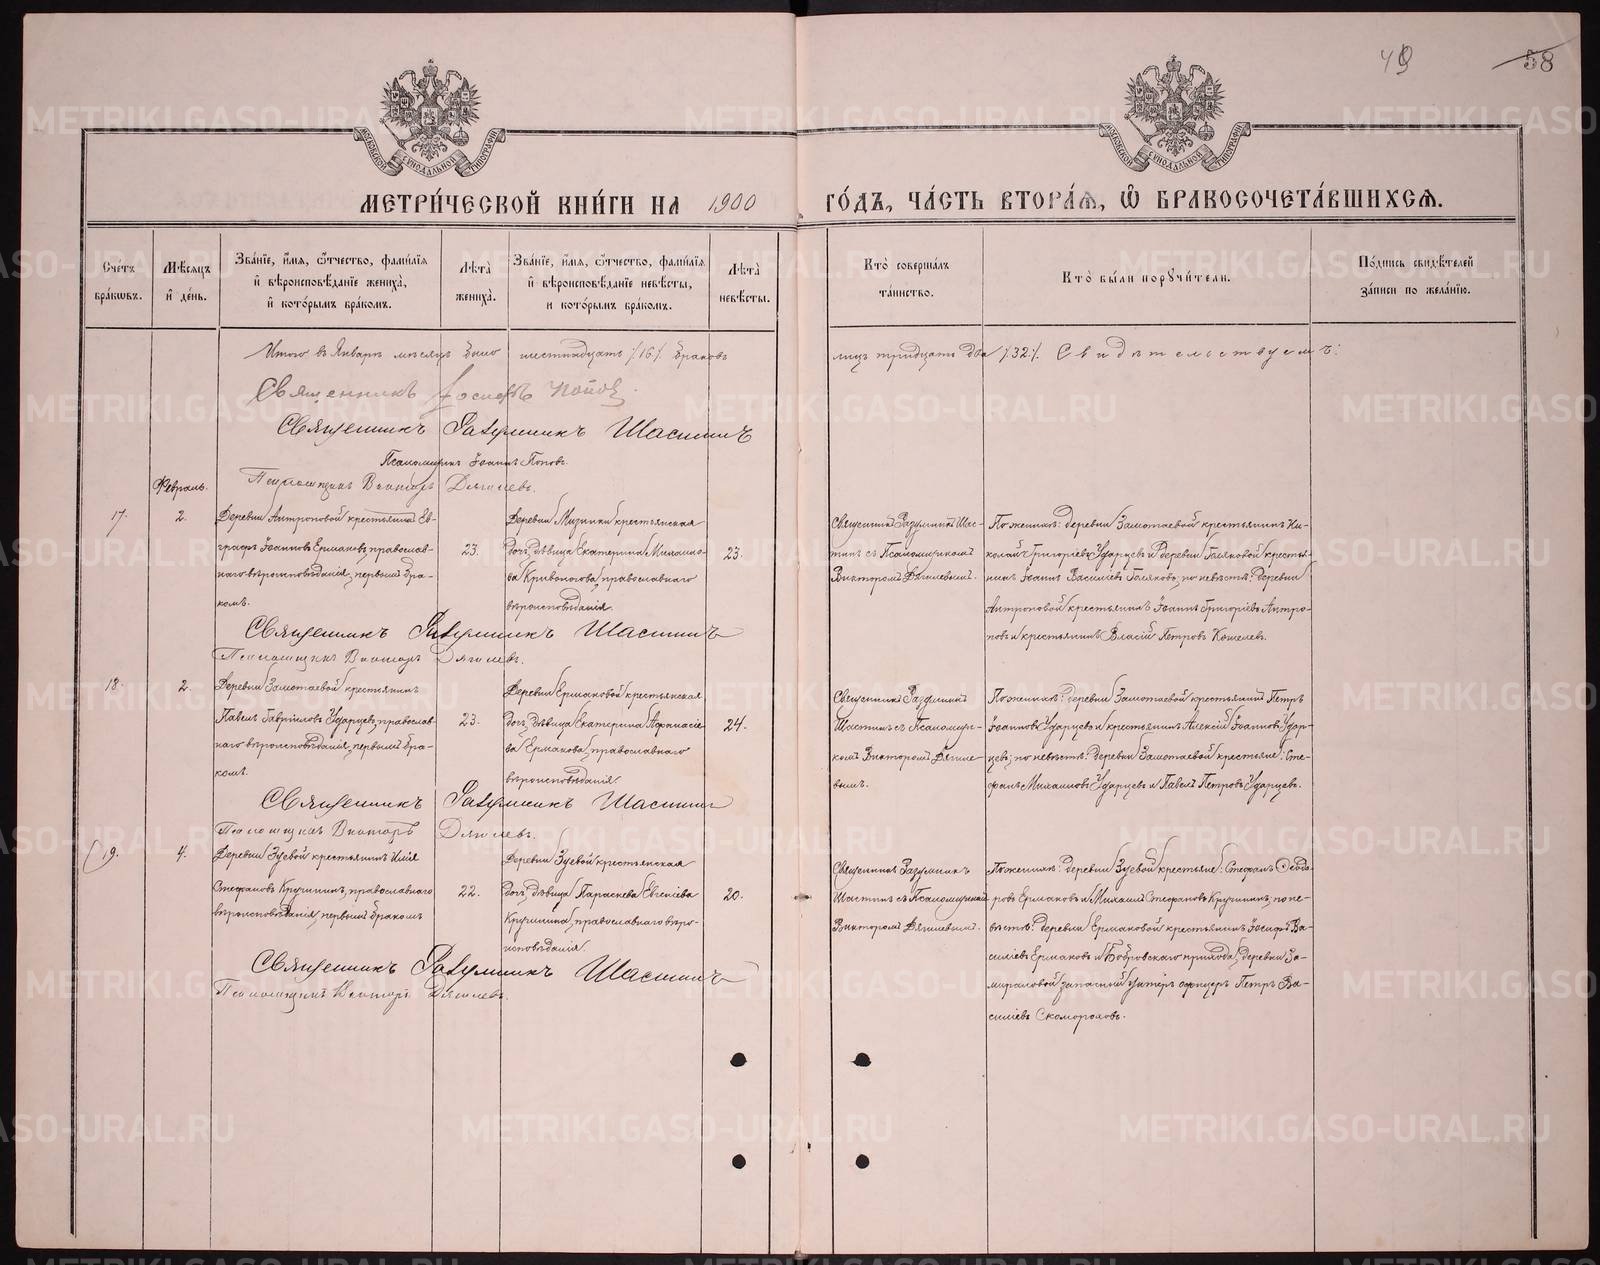 49
58
МОСКОВСКОЙ СѴНОДАЛЬНОЙ ТИПОГРАФІИ
МОСКОВСКОЙ СѴНОДАЛЬНОЙ ТИПОГРАФІИ
МЕТРИ́ЧЕСКОЙ КНИ́ГИ НА 1900 ГО́ДЪ, ЧА́СТЬ ВТОРА́Ѧ, Ѽ БРАКОСОЧЕТА́ВШИХСѦ.
Сче́тъ бра́ковъ.
Мѣ́сѧцъ и҆ де́нь.
Зва́нїе, и҆́мѧ, ѻ҆́тчество, фами́лїѧ и҆ вѣроисповѣ́данїе жениха̀, и҆ кото́рымъ бра́комъ.
Лѣ́та жениха̀.
Зва́нїе, и҆́мѧ, ѻ҆́тчество, фами́лїѧ и҆ вѣроисповѣ́данїе невѣ́сты, и кото́рымъ бра́комъ.
Лѣ́та невѣ́сты.
Кто̀ соверша́лъ та́инство.
Кто̀ бы́ли порꙋчи́тели.
По́дпись свидѣ́телей за́писи по жела́нїю.
Итого въ Январѣ мѣсяцѣ было шестнадцать /16/. браковъ лицъ тридцать два /32/. Свидѣтельствуемъ:
Священникъ Іосифъ Поповъ.
Священникъ Разумникъ Шастинъ
Псаломщикъ Іоаннъ Поповъ.
Псаломщикъ Викторъ Дягилевъ.
Февраль.
17.
2.
Деревни Антроповой крестьянинъ Ев-
графъ Іоанновъ Ермаковъ, православ-
наго вѣроисповѣданія, первымъ бра-
комъ.
23.
Деревни Мизинки крестьянская
дочь, дѣвица Екатерина Михайло-
ва Кривоногова, православнаго
вѣроисповѣданія.
23.
Священникъ Разумникъ Шас-
тинъ съ Псаломщикомъ
Викторомъ Дягилевымъ.
По женихѣ: деревни Замотаевой крестьянинъ Ни-
колай Григоріевъ Ударцевъ и деревни Голяковой крестья-
нинъ Іоаннъ Василіевъ Голяковъ; по невѣстѣ: деревни
Антроповой крестьянинъ Іоаннъ Григоріевъ Антро-
повъ и крестьянинъ Власій Петровъ Кошелевъ.
Священникъ Разумникъ Шастинъ
Псаломщикъ Викторъ Дягилевъ.
18.
2.
Деревни Замотаевой крестьянинъ
Павелъ Гавріиловъ Ударцевъ, православ-
наго вѣроисповѣданія, первымъ бра-
комъ.
23.
Деревни Ермаковой крестьянская
дочь, дѣвица Екатерина Аѳанасіе-
ва Ермакова, православнаго
вѣроисповѣданія.
24.
Священникъ Разумникъ
Шастинъ съ Псаломщи-
комъ Викторомъ Дягиле-
вымъ.
По женихѣ: деревни Замотаевой крестьянинъ Петръ
Іоанновъ Ударцевъ и крестьянинъ Алексій Іоанновъ Удар-
цевъ; по невѣстѣ: деревни Замотаевой крестьяне: Сте-
фанъ Михаиловъ Ударцевъ и Павелъ Петровъ Ударцевъ.
Священникъ Разумникъ Шастинъ
Псаломщикъ Викторъ Дягилевъ.
19.
4.
Деревни Зуевой крестьянинъ Илія
Стефановъ Кручининъ, православнаго
вѣроисповѣданія, первымъ бракомъ
22.
Деревни Зуевой крестьянская
дочь, дѣвица Параскева Евгеніева
Кручинина, православнаго вѣро-
исповѣданія.
20.
Священникъ Разумникъ
Шастинъ съ Псаломщикомъ
Викторомъ Дягилевымъ.
По женихѣ: деревни Зуевой крестьяне: Стефанъ Ѳеодо-
ровъ Ермаковъ и Михаилъ Стефановъ Кручининъ; по не-
вѣстѣ: деревни Ермаковой крестьянинъ Іосифъ Ва-
силіевъ Ермаковъ и Бобровскаго прихода, деревни За-
мараловой запасный унтеръ офицеръ Петръ Ва-
силіевъ Скомороховъ.
Священникъ Разумникъ Шастинъ
Псаломщикъ Викторъ Дягилевъ.
METRIKI.GASO-URAL.RU